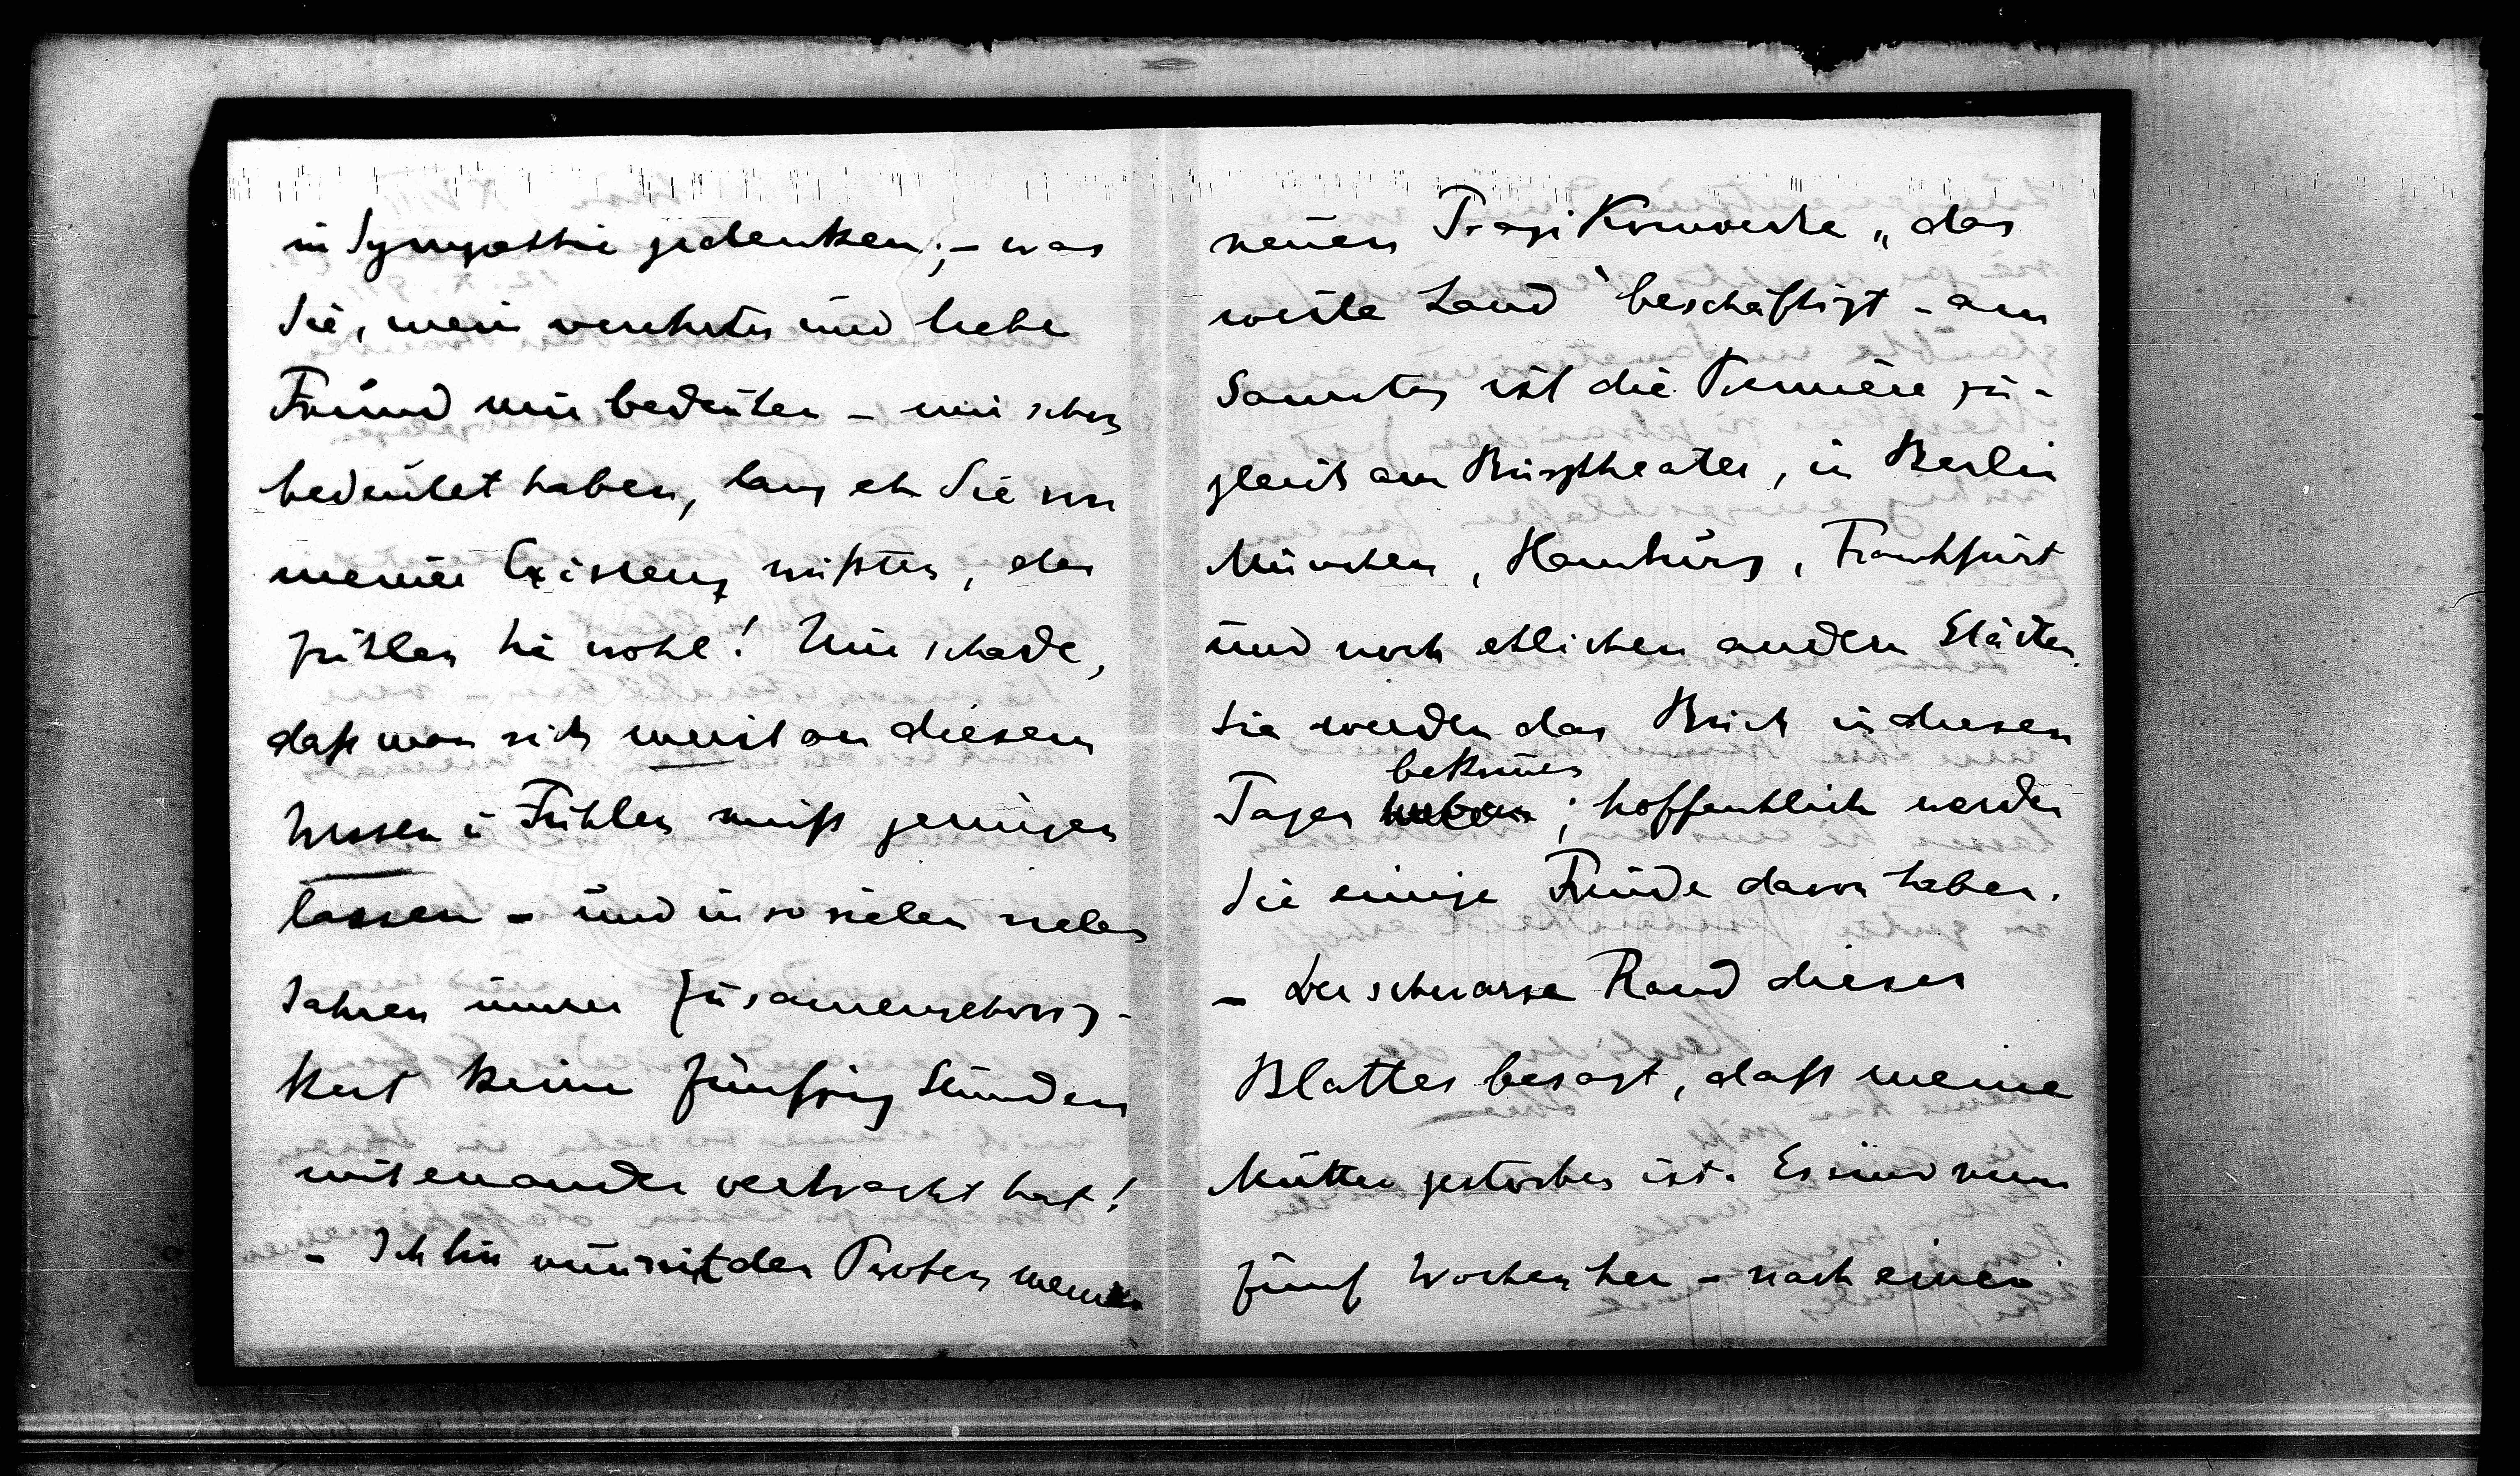 in Sympathie gedenken; – was
Sie, mein verehrter und lieber
Freund mir bedeuten – mir schon
bedeutet haben, lang eh Sie von
meiner Existenz wußten, das
fühlen Sie wohl! Nur schade,
daß man sich meist an diesem
Wissen u Fühlen muß genügen
lassen – und in so vielen vielen
Jahren innrer Zusamengehörig-
keit keine fünfzig Stunden
miteinander verbracht hat!
– Ich bin nun mit den Proben meiner
neuen Tragikomoedie „das
weite Land“ beschäftigt – am
Samstag ist die Première zu-
gleich am Burgtheater, in Berlin
München, Hamburg, Frankfurt
und noch etlichen andern Städten.
Sie werden das Buch in diesen
bekomen
Tagen haben; hoffentlich werden
Sie einige Freude davon haben.
– Der schwarze Rand dieses
Blattes besagt, daß meine
Mutter gestorben ist. Es sind nun
fünf Wochen her – nach einer